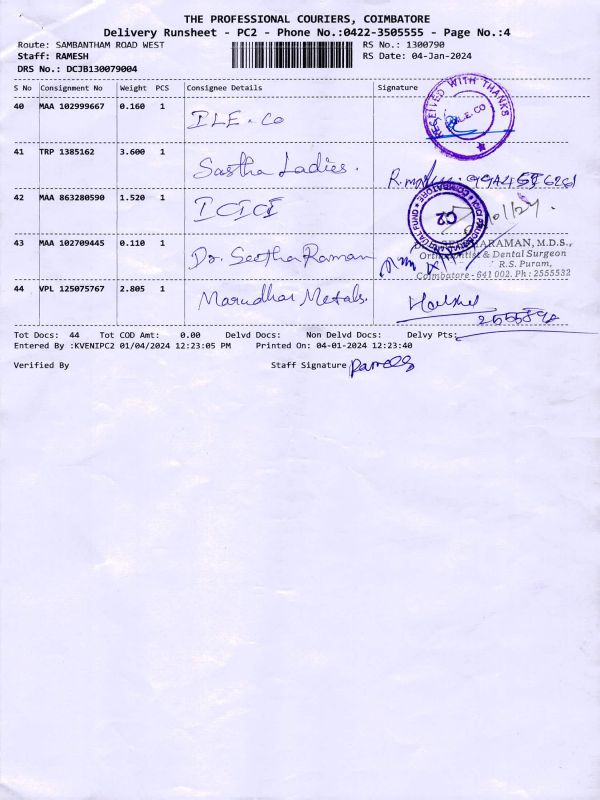 THE PROFESSIONAL COURIERS, COIMBATORE
Delivery Runsheet - PC2 - Phone No.:0422-3505555 - Page No.:4
Route: SAMBANTHAM ROAD WEST RS No.: 1300790
Staff: RAMESH RS Date: 04-Jan-2024
DRS No.: DCJB130079004
S No Consignment No Weight PCS Consignee Details Signature
40 MAA 102999667 0.160 1 ILE-Co
RECEIVED WITH THANKS
ILE-CO
41 TRP 1385162 3.600 1 Sastha Ladies.
42 MAA 863280590 1.520 1 ICICI
C2
43 MAA 102709445 0.110 1 Dr. Seetha Raman
ARAMAN, M.D.S.,
& Dental Surgeon
R.S. Puram,
Coimbatore - 641 002. Ph : 2555532
44 VPL 125075767 2.805 1 Marudhar Metals.
Tot Docs: 44 Tot COD Amt: 0.00 Delvd Docs: Non Delvd Docs: Delvy Pts:
Entered By :KVENIPC2 01/04/2024 12:23:05 PM Printed On: 04-01-2024 12:23:40
Verified By Staff Signature